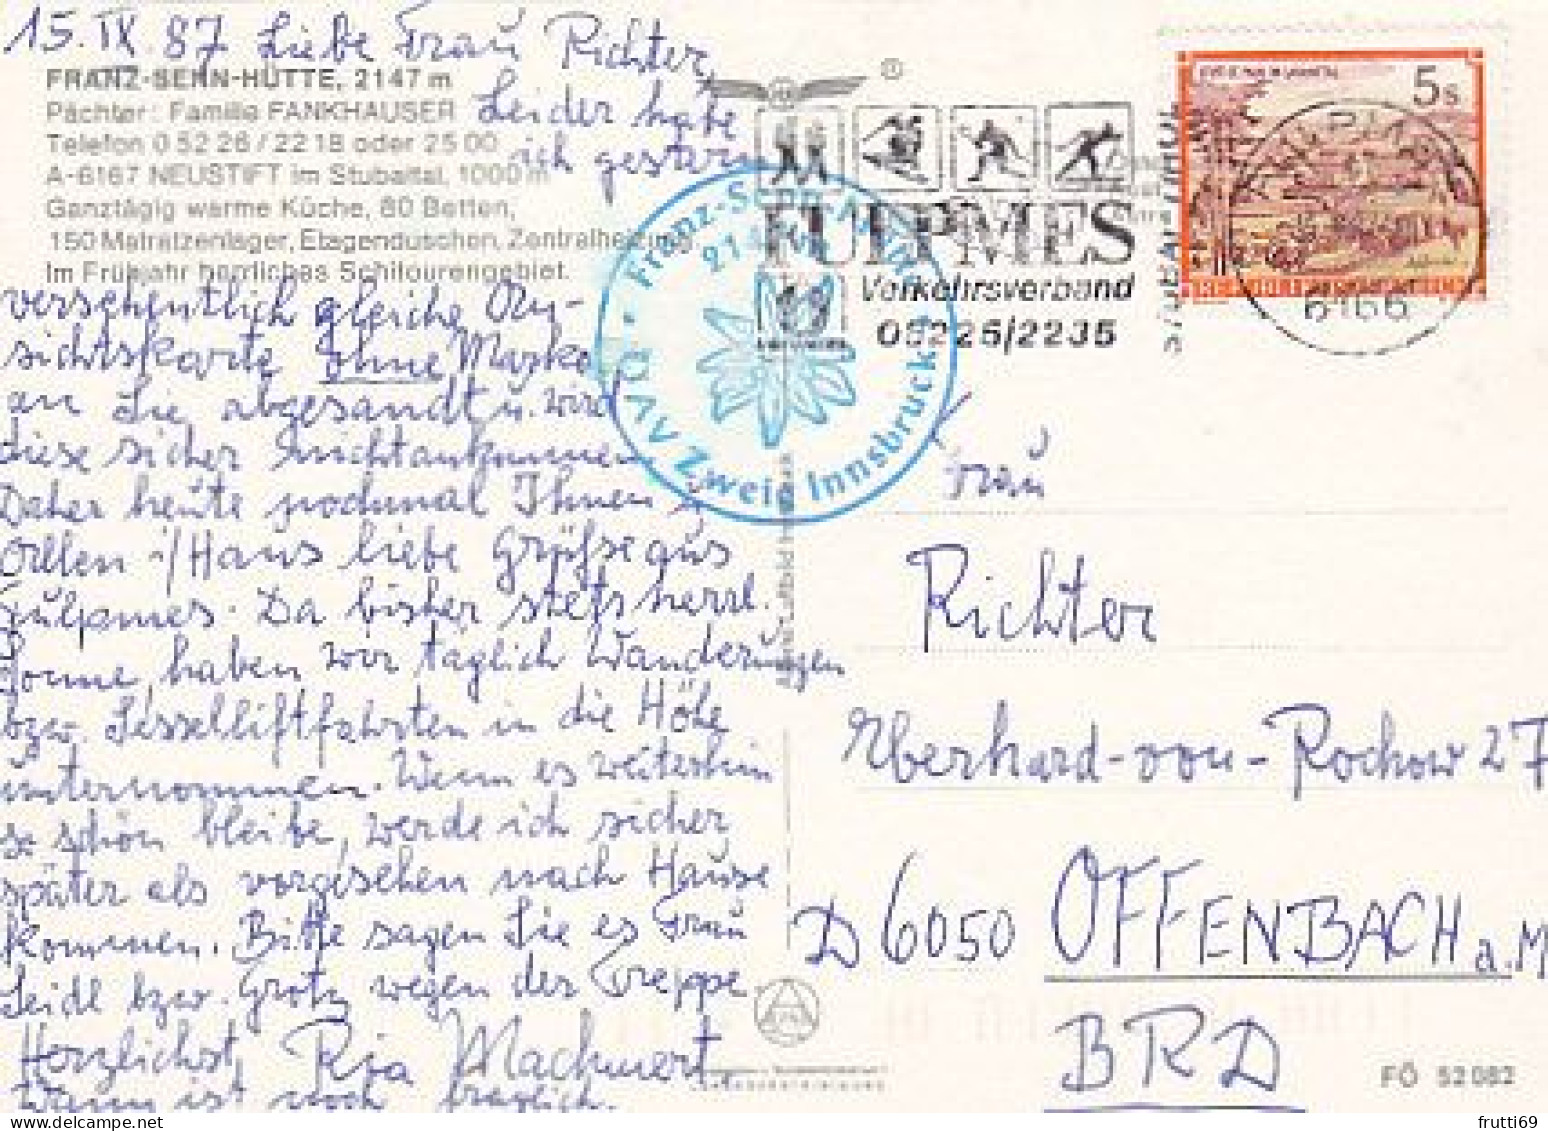 15. IX. 87 Liebe Frau Richter,
FRANZ-SENN-HÜTTE, 2147 m
Pächter: Familie FANKHAUSER
Leider habe
Telefon 0 52 26 / 22 18 oder 25 00
ich gestern
A-6167 NEUSTIFT im Stubaital, 1000 m
Ganztägig warme Küche, 80 Betten,
150 Matratzenlager, Etagenduschen, Zentralheizung
Im Frühjahr herrliches Schitourengebiet.
versehentlich gleiche An-
sichtskarte ohne Marke
an Sie abgesandt u. wird
diese sicher nicht ankommen
Daher heute nochmal Ihnen
allen i/Haus liebe Grüße aus
Fulpmes. Da bisher stets herrl.
Sonne, haben wir täglich Wanderungen
bzw. Sesselliftfahrten in die Höhe
unternommen. Wenn es weiterhin
so schön bleibt, werde ich sicher
später als vorgesehen nach Hause
kommen. Bitte sagen Sie es Frau
Seidl bzw. Grotz wegen der Treppe.
Herzlichst, Ria Machwert
Wann ist noch fraglich.
Franz-Senn-Hütte
ÖAV Zweig Innsbruck
FULPMES
Verkehrsverband
05225/2235
STUBAI TIROL
5s
6166
Frau
Richter
Eberhard-von-Rochow 27
D 6050 OFFENBACH a.M
BRD
FÖ 52082
frutti69